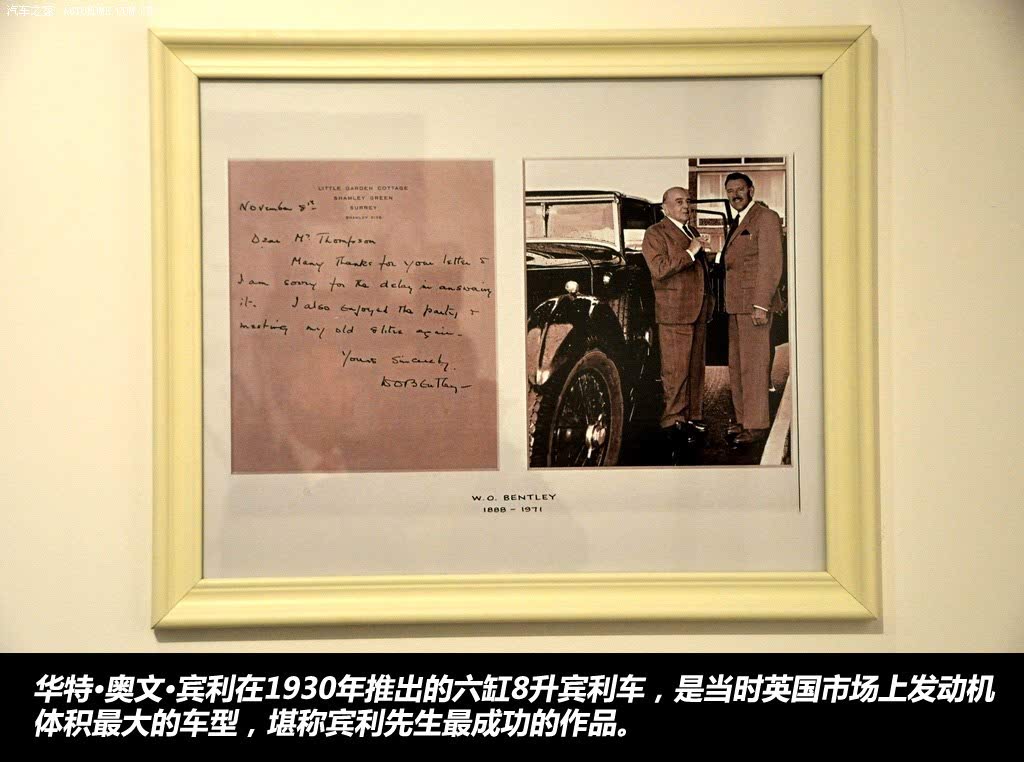 汽车之家
LITTLE GARDEN COTTAGE
SHAMLEY GREEN
SURREY
November 8th
Dear Mr Thompson
Many Thanks for your letter &
I am sorry for the delay in answering
it. I also enjoyed the party, &
meeting my old elites again.
Yours Sincerely.
W.O. Bentley
W.O. BENTLEY
1888 - 1971
华特·奥文·宾利在1930年推出的六缸8升宾利车，是当时英国市场上发动机
体积最大的车型，堪称宾利先生最成功的作品。